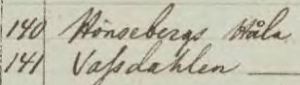 140 Hönsebergs Håla
141 Vassdahlen —